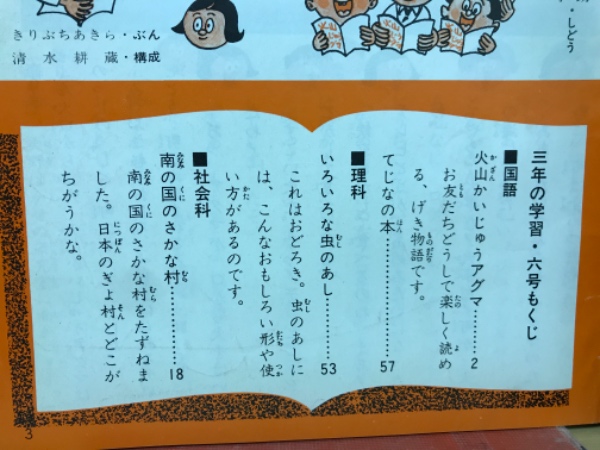 きりぶちあきら・ぶん
清水耕蔵・構成
・しどう
三年の学習・六号もくじ
■国語
火山かいじゅうアグマ…………2
お友だちどうしで楽しく読め
る、げき物語です。
てじなの本…………57
■理科
いろいろな虫のあし…………53
これはおどろき。虫のあしに
は、こんなおもしろい形や使
い方があるのです。
■社会科
南の国のさかな村…………18
南の国のさかな村をたずねま
した。日本のぎょ村とどこが
ちがうかな。
3